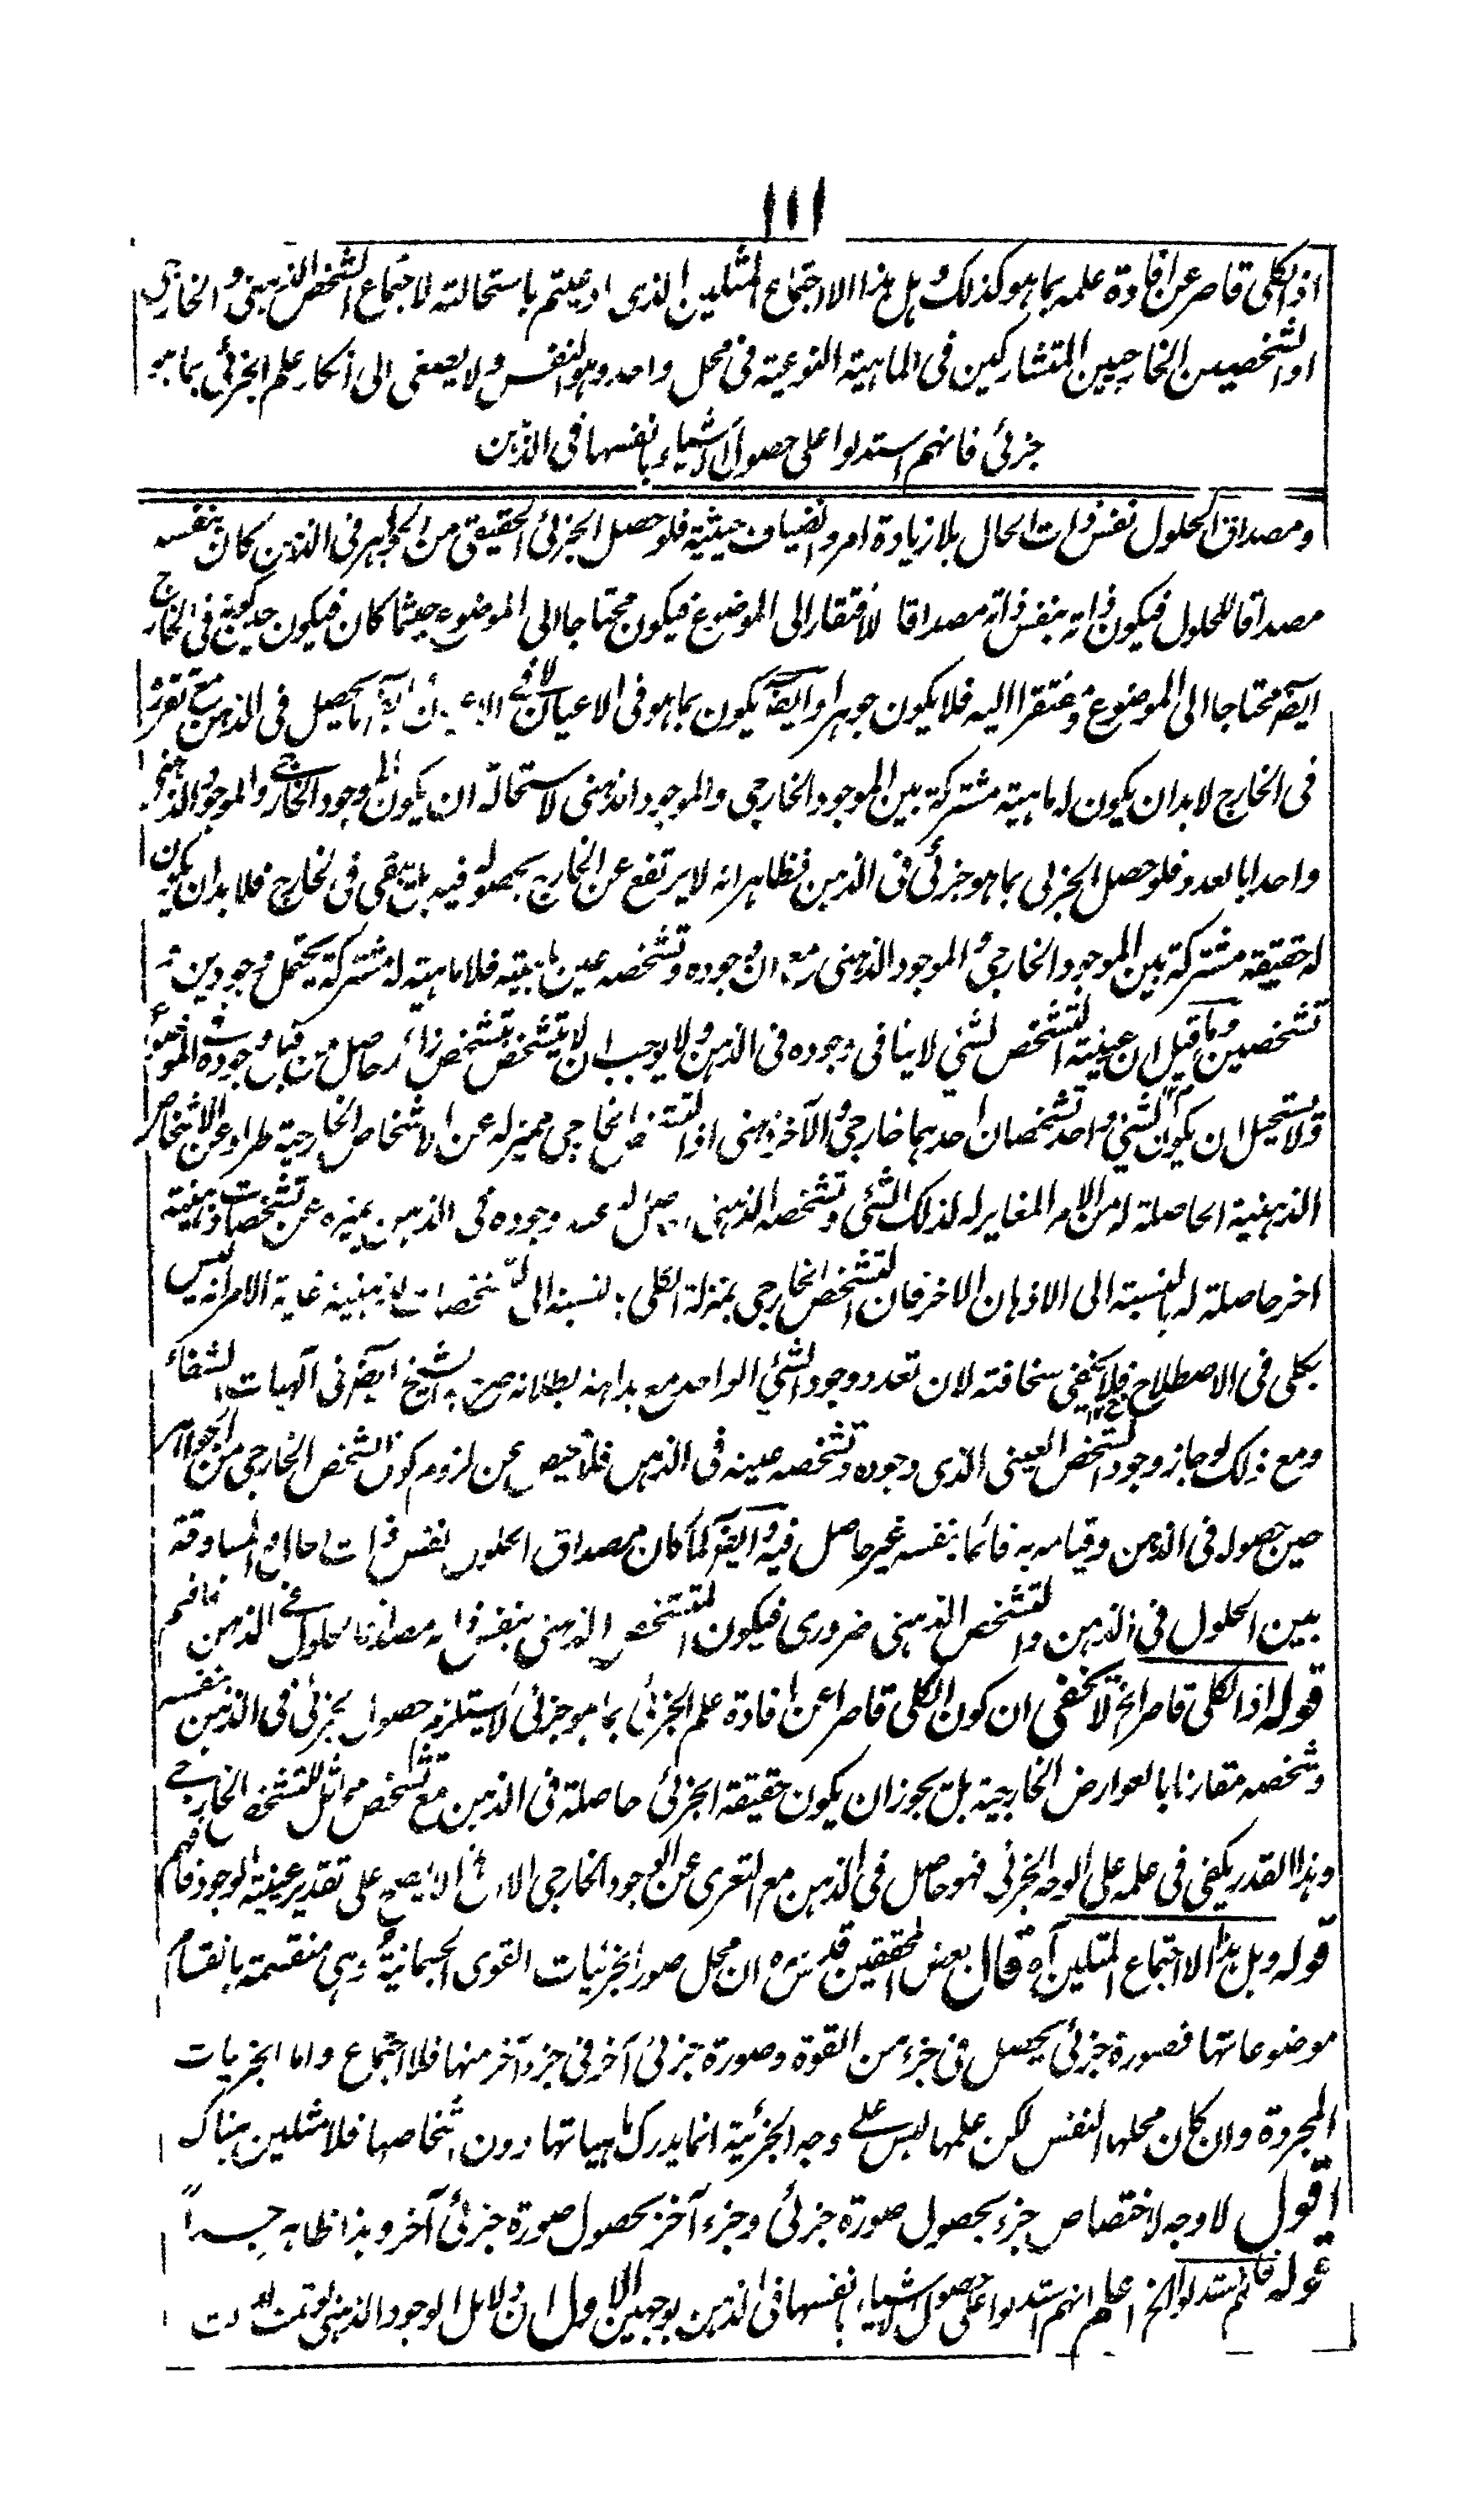 ١١١
اذ الكلى قاصر عن افادة علمه بما هو كذلك وهل هذا الا اجتماع المثلين الذى ادعيتم باستحالته لاجتماع الشخص الذهنى والخارجى
او الشخصين الخارجيين المتشاركين فى الماهية النوعية فى محل واحد وهو النفس ولا يصغى الى انكار علم الجزئى بما هو
جزئى فانهم استدلوا على حصول الاشياء بانفسها فى الذهن
ومصداق الحلول نفس ذات الحال بلا زيادة امر وانضياف حيثية فلو حصل الجزئى الحقيقى من الجواهر فى الذهن كان بنفسه
مصداقا للحلول فيكون ذاته بنفس ذاته مصداقا لافتقار الى الموضوع فيكون محتاجا الى الموضوع حيثما كان فيكون حين كونه فى الخارج
ايضا محتاجا الى الموضوع ومفتقرا اليه فلا يكون جوهرا وايضا يكون بما هو فى الاعيان لا فى ما يحصل فى الذهن مع تقرره
فى الخارج لا بد ان يكون له ماهية مشتركة بين الموجود الخارجى والموجود الذهنى لاستحالة ان يكون الموجود الخارجى والموجود الذهنى
واحدا بالعدد فلو حصل الجزئى بما هو جزئى فى الذهن فظاهر انه لا يرتفع عن الخارج بحصوله فيه بل يبقى فى الخارج فلا بد ان يكون
له حقيقة مشتركة بين الموجود الخارجى والموجود الذهنى مع ان وجوده وتشخصه عين ماهيته فلا ماهية له مشتركة يحتمل وجودين و
تشخصين وما قيل ان عينية التشخص لشئ لا ينافى وجوده فى الذهن ولا يوجب ان لا يتشخص بتشخص زائد حاصل من قبل وجوده فى الموضوع
ولا يستحيل ان يكون لشئ واحد تشخصان احدهما خارجى والآخر ذهنى اذ التشخص الخارجى مميز له عن الاشخاص الخارجية طرا وعن الاشخاص
الذهنية الحاصلة له من الامر المغاير له لذلك الشئ وتشخصه الذهنى له عند وجوده فى الذهن يميزه عن تشخصات ذهنية
اخر حاصلة له بالنسبة الى الاذهان الاخر فان التشخص الخارجى بمنزلة الكلى بالنسبة الى التشخصات الذهنية غاية الامر انه ليس
بكلى فى الاصطلاح فلا يخفى سخافته لان تعدد وجود الشئ الواحد مع بداهة بطلانه صرح به الشيخ ايضا فى آلهيات الشفاء
ومع ذلك لو جاز وجود الشخص العينى الذى وجوده وتشخصه عينه فى الذهن فلا محيص عن لزوم كون الشخص الخارجى من الجواهر
حين حصوله فى الذهن وقيامه به قائما بنفسه غير حاصل فيه وايضا لما كان مصداق الحلول نفس ذات الحال والمساوقة
بين الحلول فى الذهن والتشخص الذهنى ضرورى فيكون المتشخص الذهنى بنفس ذاته مصداقا للحلول فى الذهن فافهم
قوله اذ الكلى قاصر الخ لا يخفى ان كون الكلى قاصرا عن افادة علم الجزئى بما هو جزئى لا يستلزم حصول الجزئى فى الذهن بنفسه
وشخصه مقارنا بالعوارض الخارجية بل يجوز ان يكون حقيقة الجزئى حاصلة فى الذهن مع تشخص مماثل للتشخص الخارجى
وهذا القدر يكفى فى علمه على الوجه الجزئى فهو حاصل فى الذهن مع التعرى عن الوجود الخارجى الا ان هذا لا يصح على تقدير عينية الوجود فافهم
قوله وهل هذا الا اجتماع المثلين آه قال بعض المحققين قدس سره ان محل صور الجزئيات القوى الجسمانية وهى منقسمة بانقسام
موضوعاتها فصورة جزئى يحصل فى جزء من القوة وصورة جزئى آخر فى جزء آخر منها فلا اجتماع واما الجزئيات
المجردة وان كان محلها النفس لكن علمها ليس على وجه الجزئية انما يدرك ماهياتها دون اشخاصها فلا مثلين هناك
اقول لا وجه لاختصاص جزء بحصول صورة جزئى وجزء آخر بحصول صورة جزئى آخر وهذا ظاهر جداً
قوله فانهم استدلوا الخ اعلم انهم استدلوا على حصول الاشياء بانفسها فى الذهن بوجهين الاول ان دلائل الوجود الذهنى لو تمت لدلت